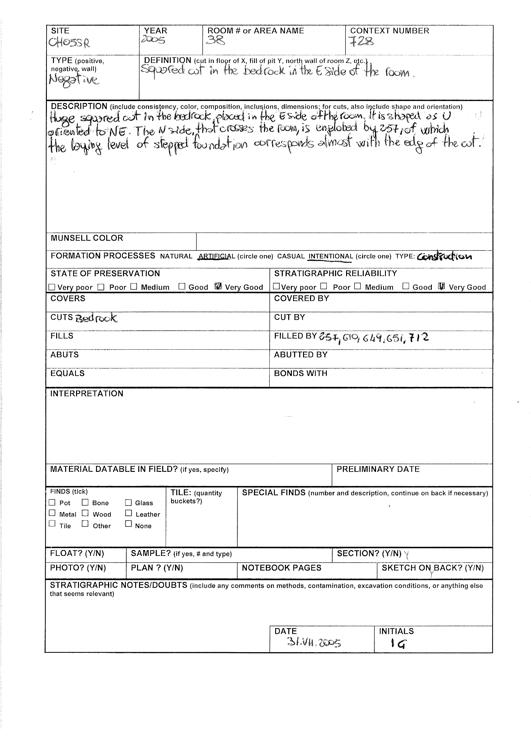 SITE
CHO5SR
YEAR
2005
ROOM # or AREA NAME
38
CONTEXT NUMBER
728
TYPE (positive, negative, wall)
Negative
DEFINITION (cut in floor of X, fill of pit Y, north wall of room Z, etc.)
Squared cut in the bedrock in the E side of the room.
DESCRIPTION (include consistency, color, composition, inclusions, dimensions; for cuts, also include shape and orientation)
Huge squared cut in the bedrock, placed in the E side of the room. It is shaped as U
oriented to NE. The N side, that crosses the room, is englobed by 257, of which
the laying level of stepped foundation corresponds almost with the edge of the cut.
MUNSELL COLOR
FORMATION PROCESSES NATURAL ARTIFICIAL (circle one) CASUAL INTENTIONAL (circle one) TYPE: Construction
STATE OF PRESERVATION
STRATIGRAPHIC RELIABILITY
Very poor Poor Medium Good Very Good
Very poor Poor Medium Good Very Good
COVERS
COVERED BY
CUTS Bedrock
CUT BY
FILLS
FILLED BY 257, 610, 649, 651, 712
ABUTS
ABUTTED BY
EQUALS
BONDS WITH
INTERPRETATION
MATERIAL DATABLE IN FIELD? (if yes, specify)
PRELIMINARY DATE
FINDS (tick)
Pot Bone Glass
Metal Wood Leather
Tile Other None
TILE: (quantity
buckets?)
SPECIAL FINDS (number and description, continue on back if necessary)
FLOAT? (Y/N)
SAMPLE? (if yes, # and type)
SECTION? (Y/N) Y
PHOTO? (Y/N)
PLAN ? (Y/N)
NOTEBOOK PAGES
SKETCH ON BACK? (Y/N)
Y
STRATIGRAPHIC NOTES/DOUBTS (include any comments on methods, contamination, excavation conditions, or anything else
that seems relevant)
DATE
31.VII.2005
INITIALS
IG